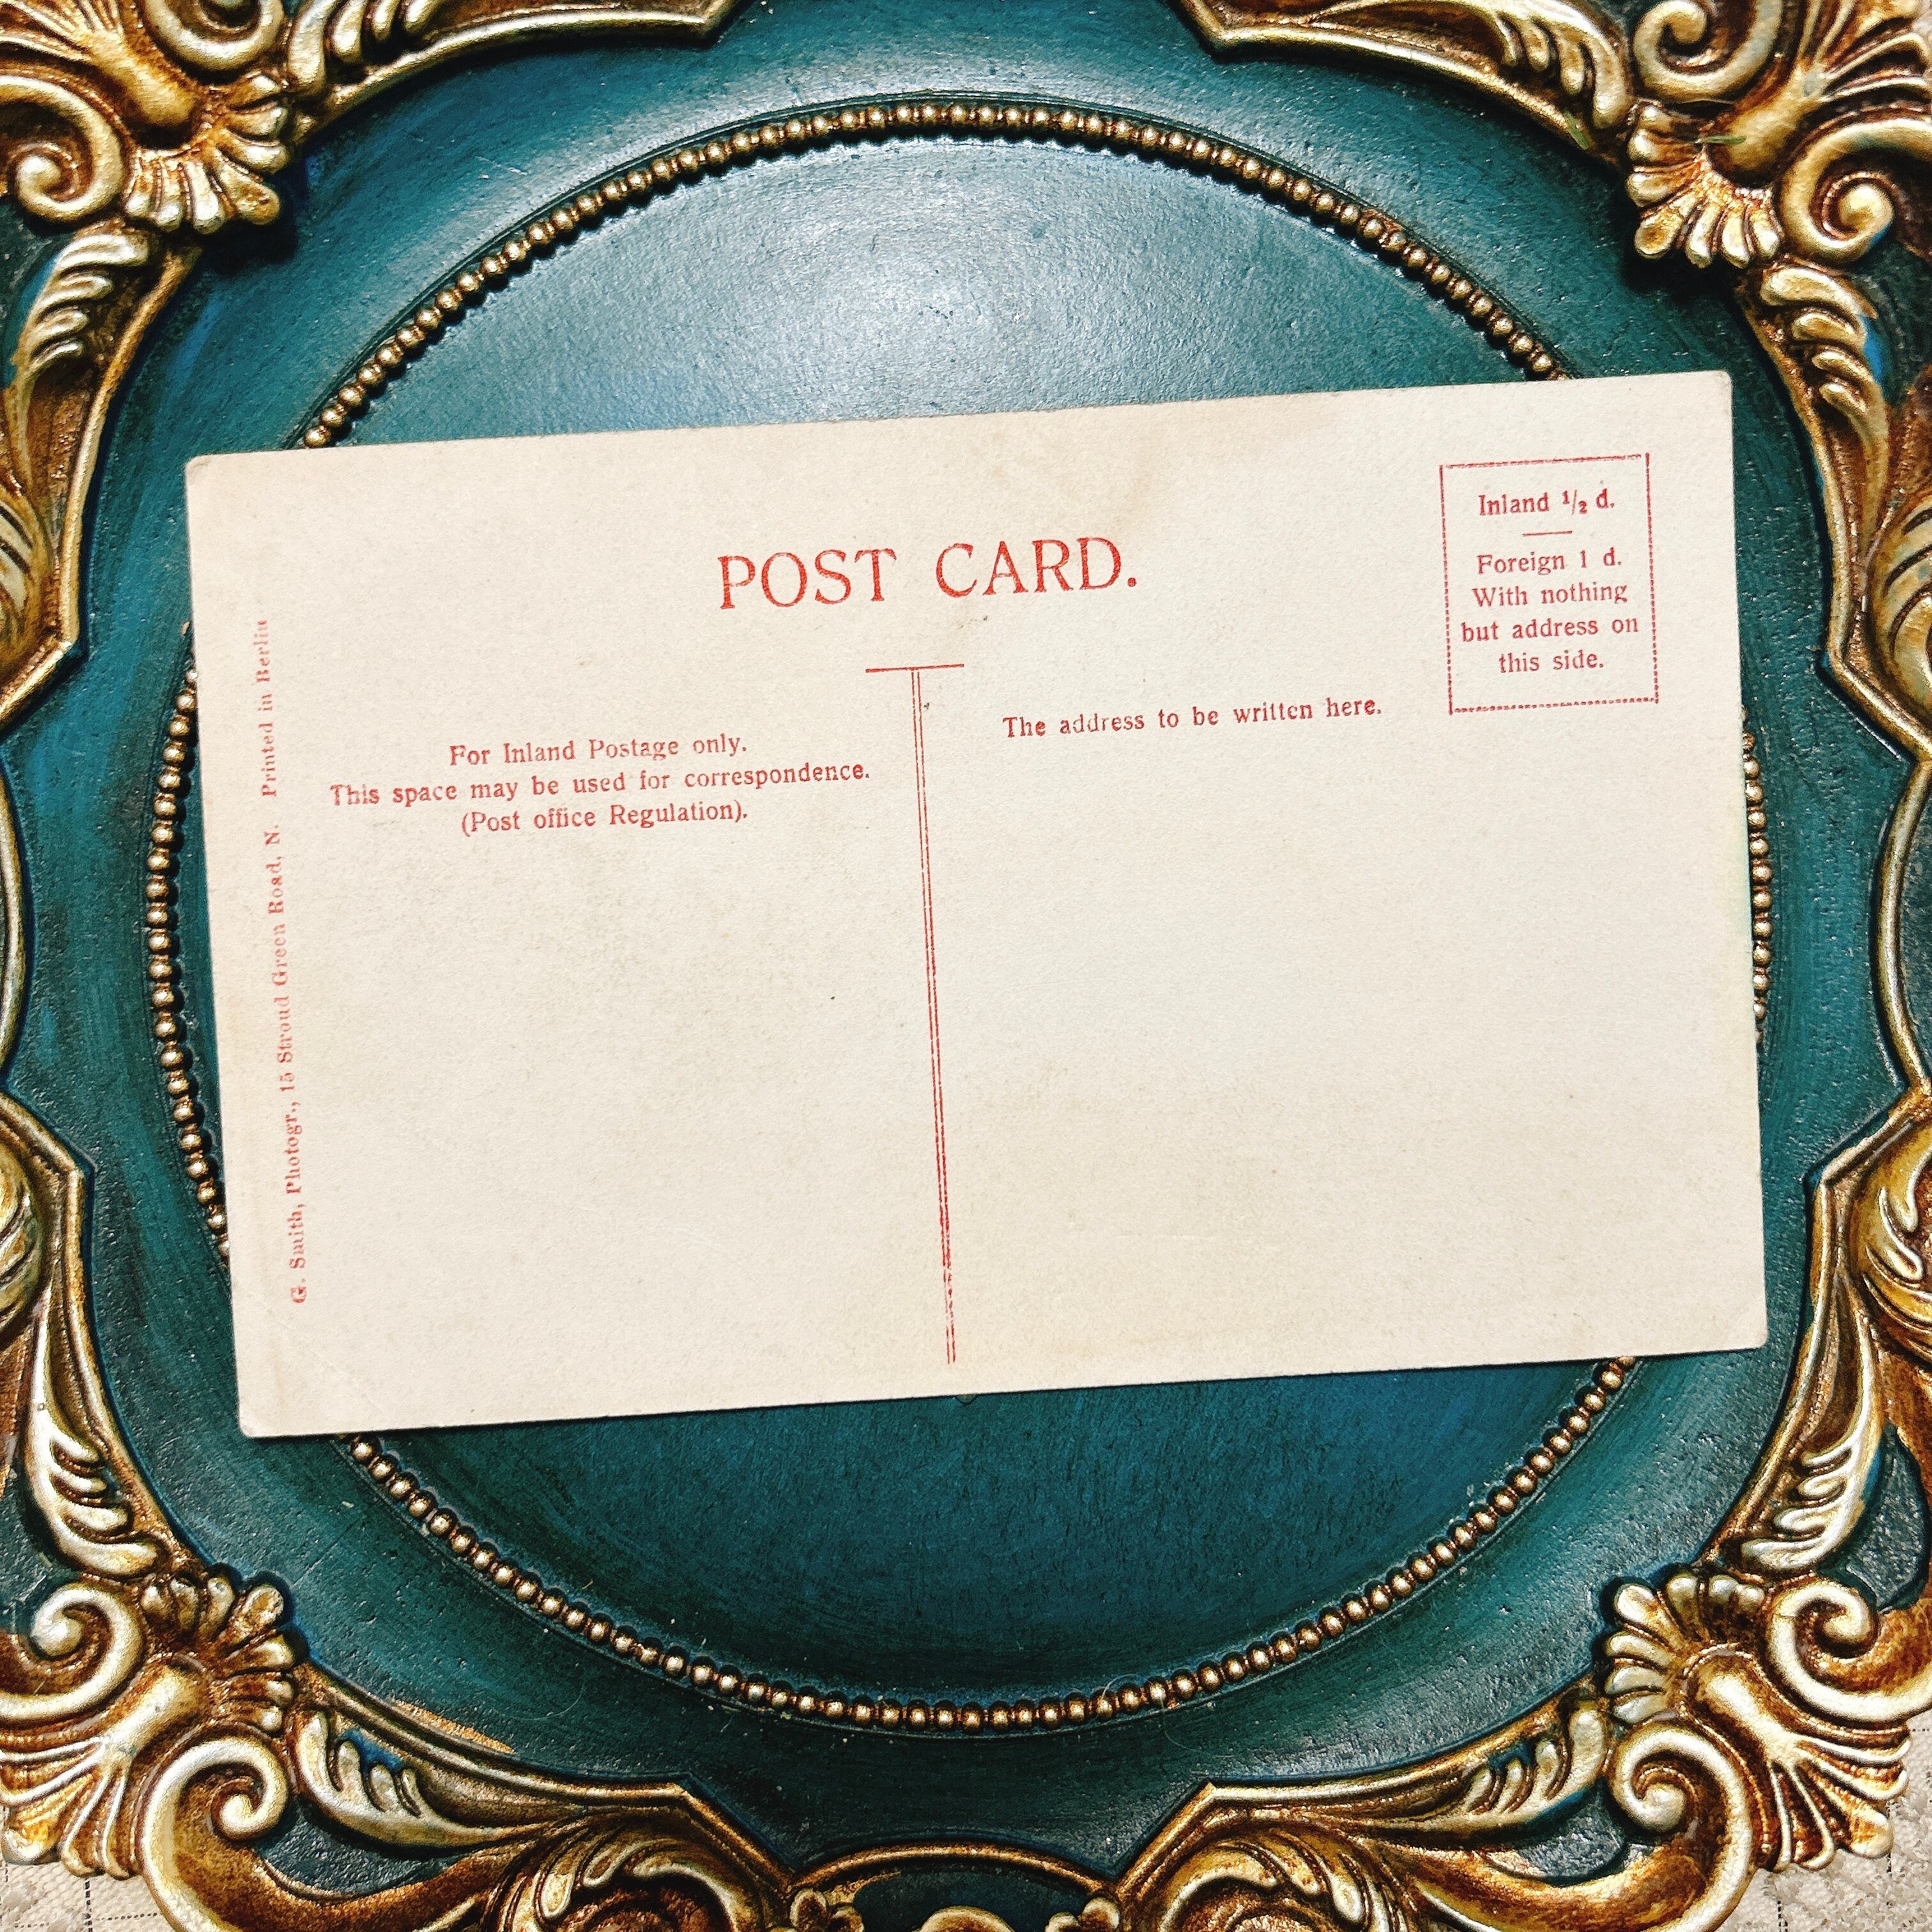 POST CARD.
Inland ½ d.
Foreign 1 d.
With nothing
but address on
this side.
For Inland Postage only.
This space may be used for correspondence.
(Post office Regulation).
The address to be written here.
G. Smith, Photogr., 15 Stroud Green Road, N. Printed in Berlin